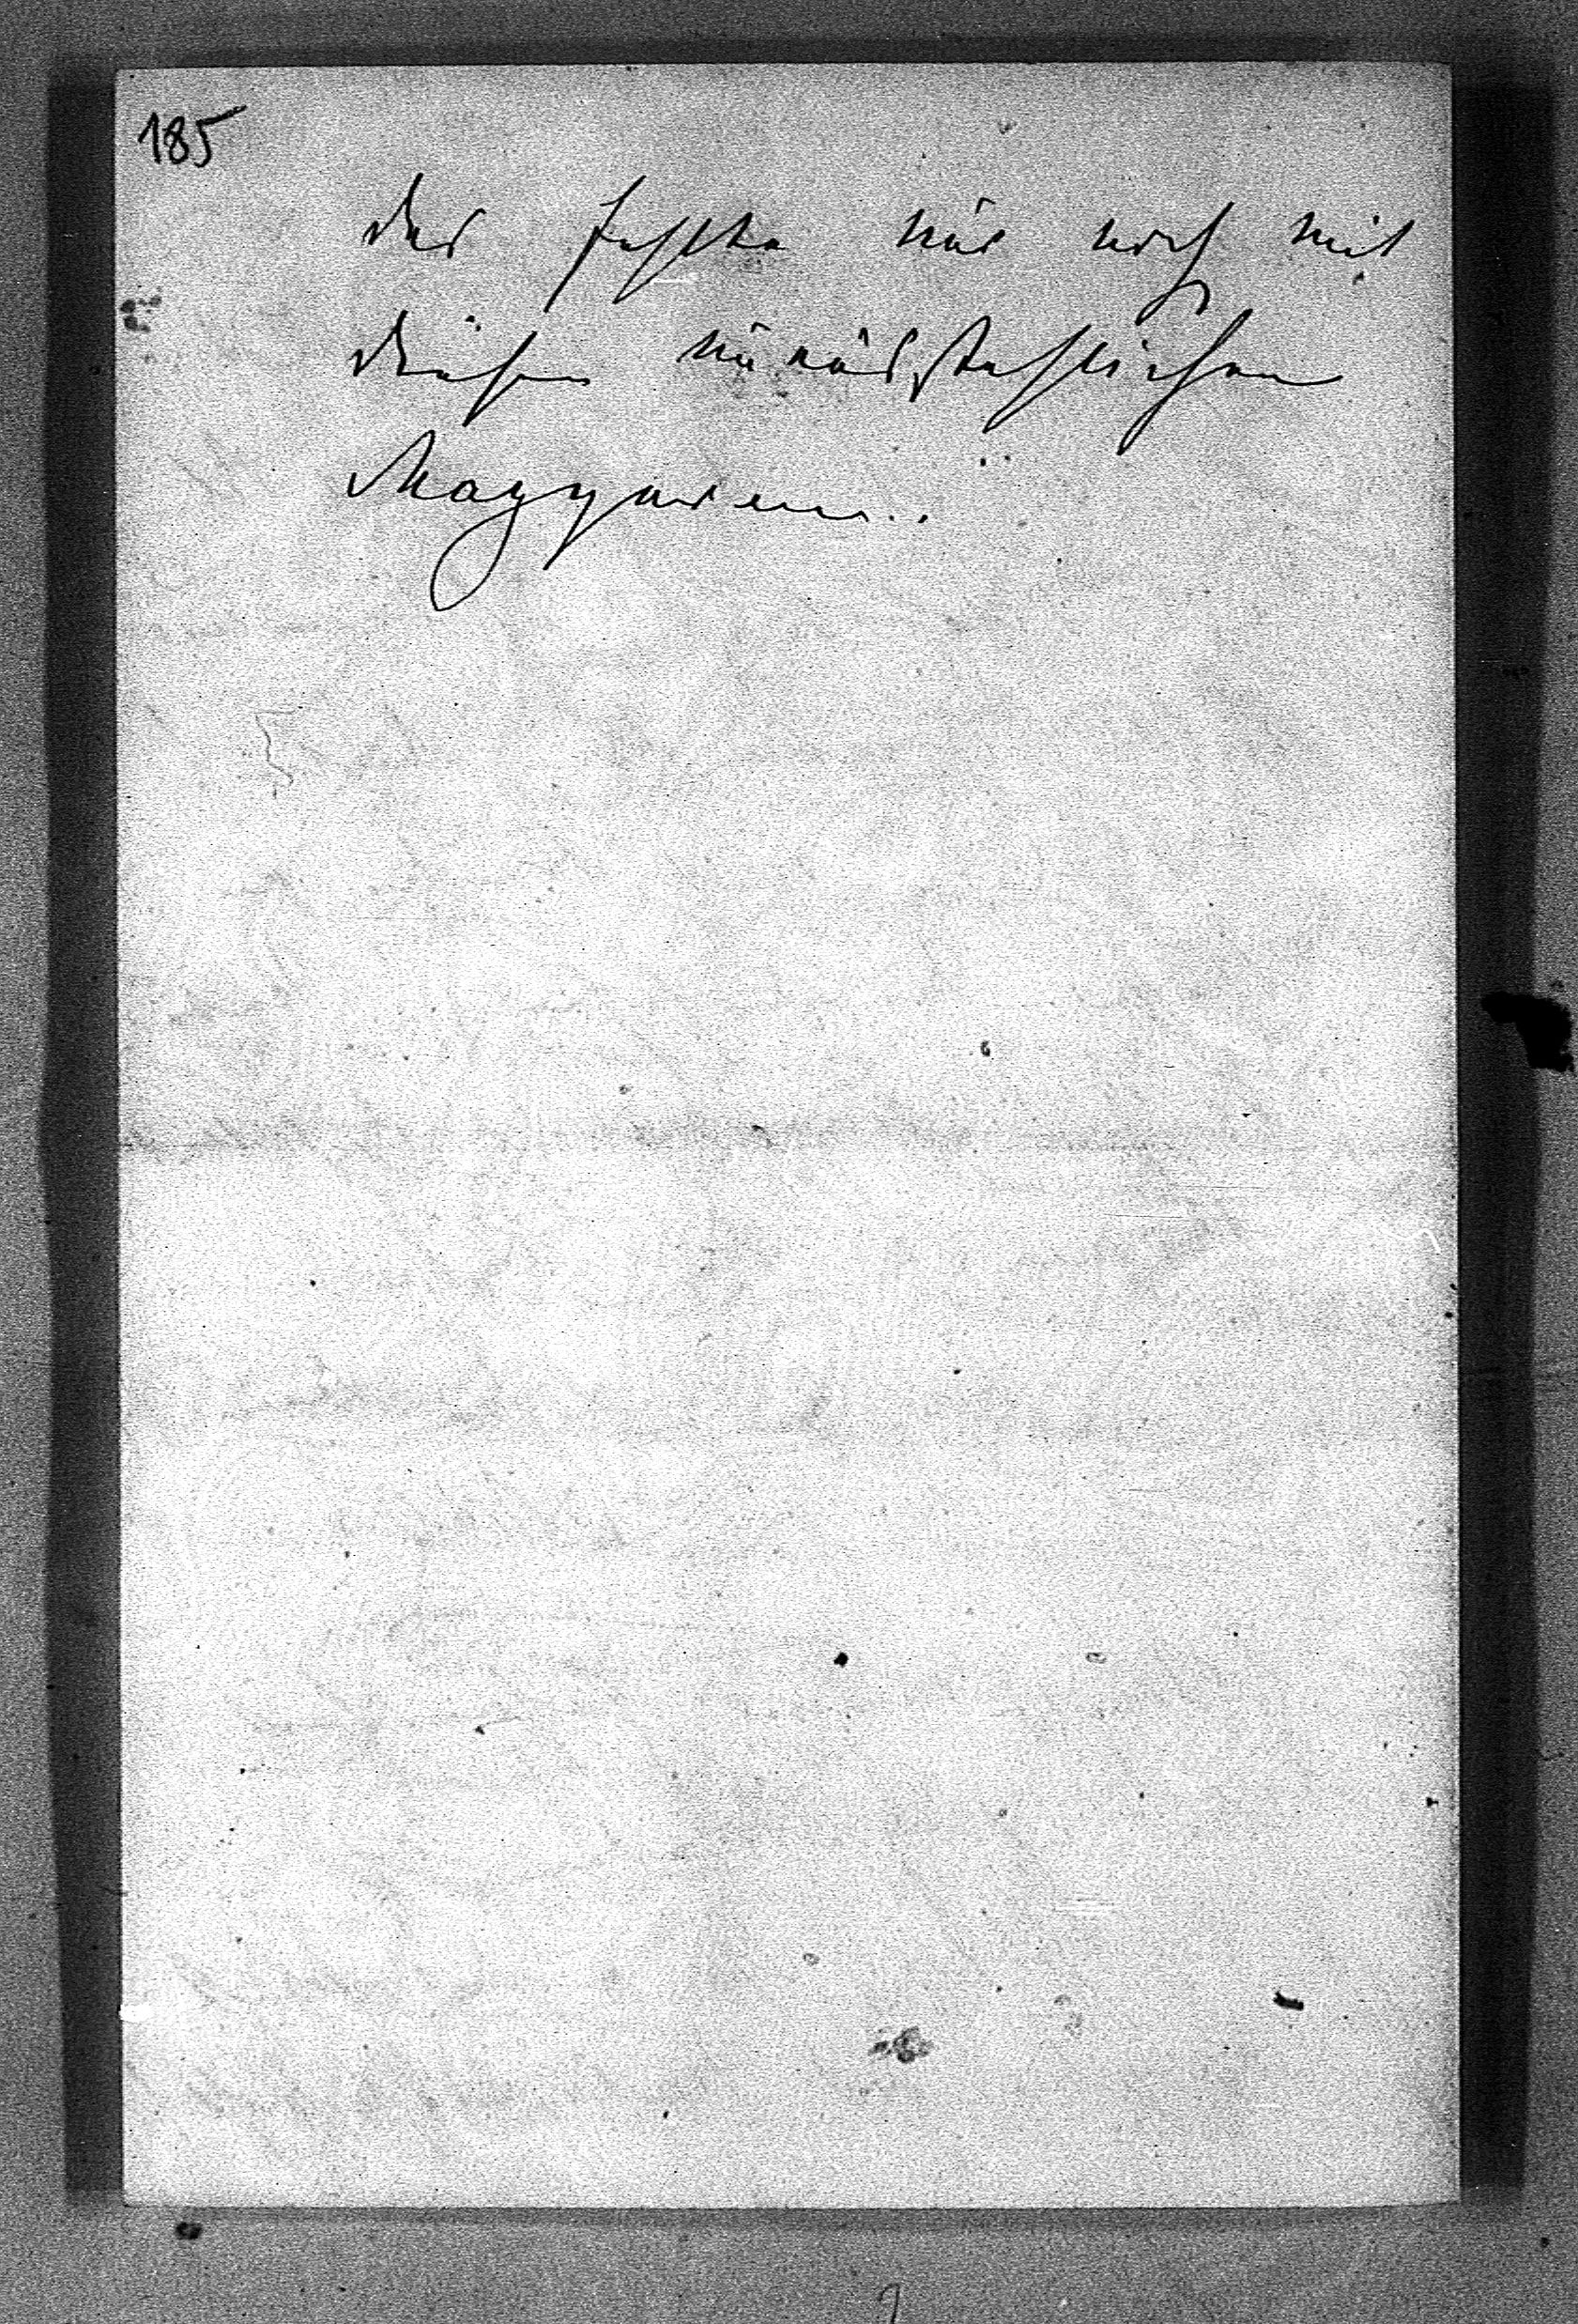 185
Das fehlte nur noch mit
diesen unausstehlichen
Magyaren..